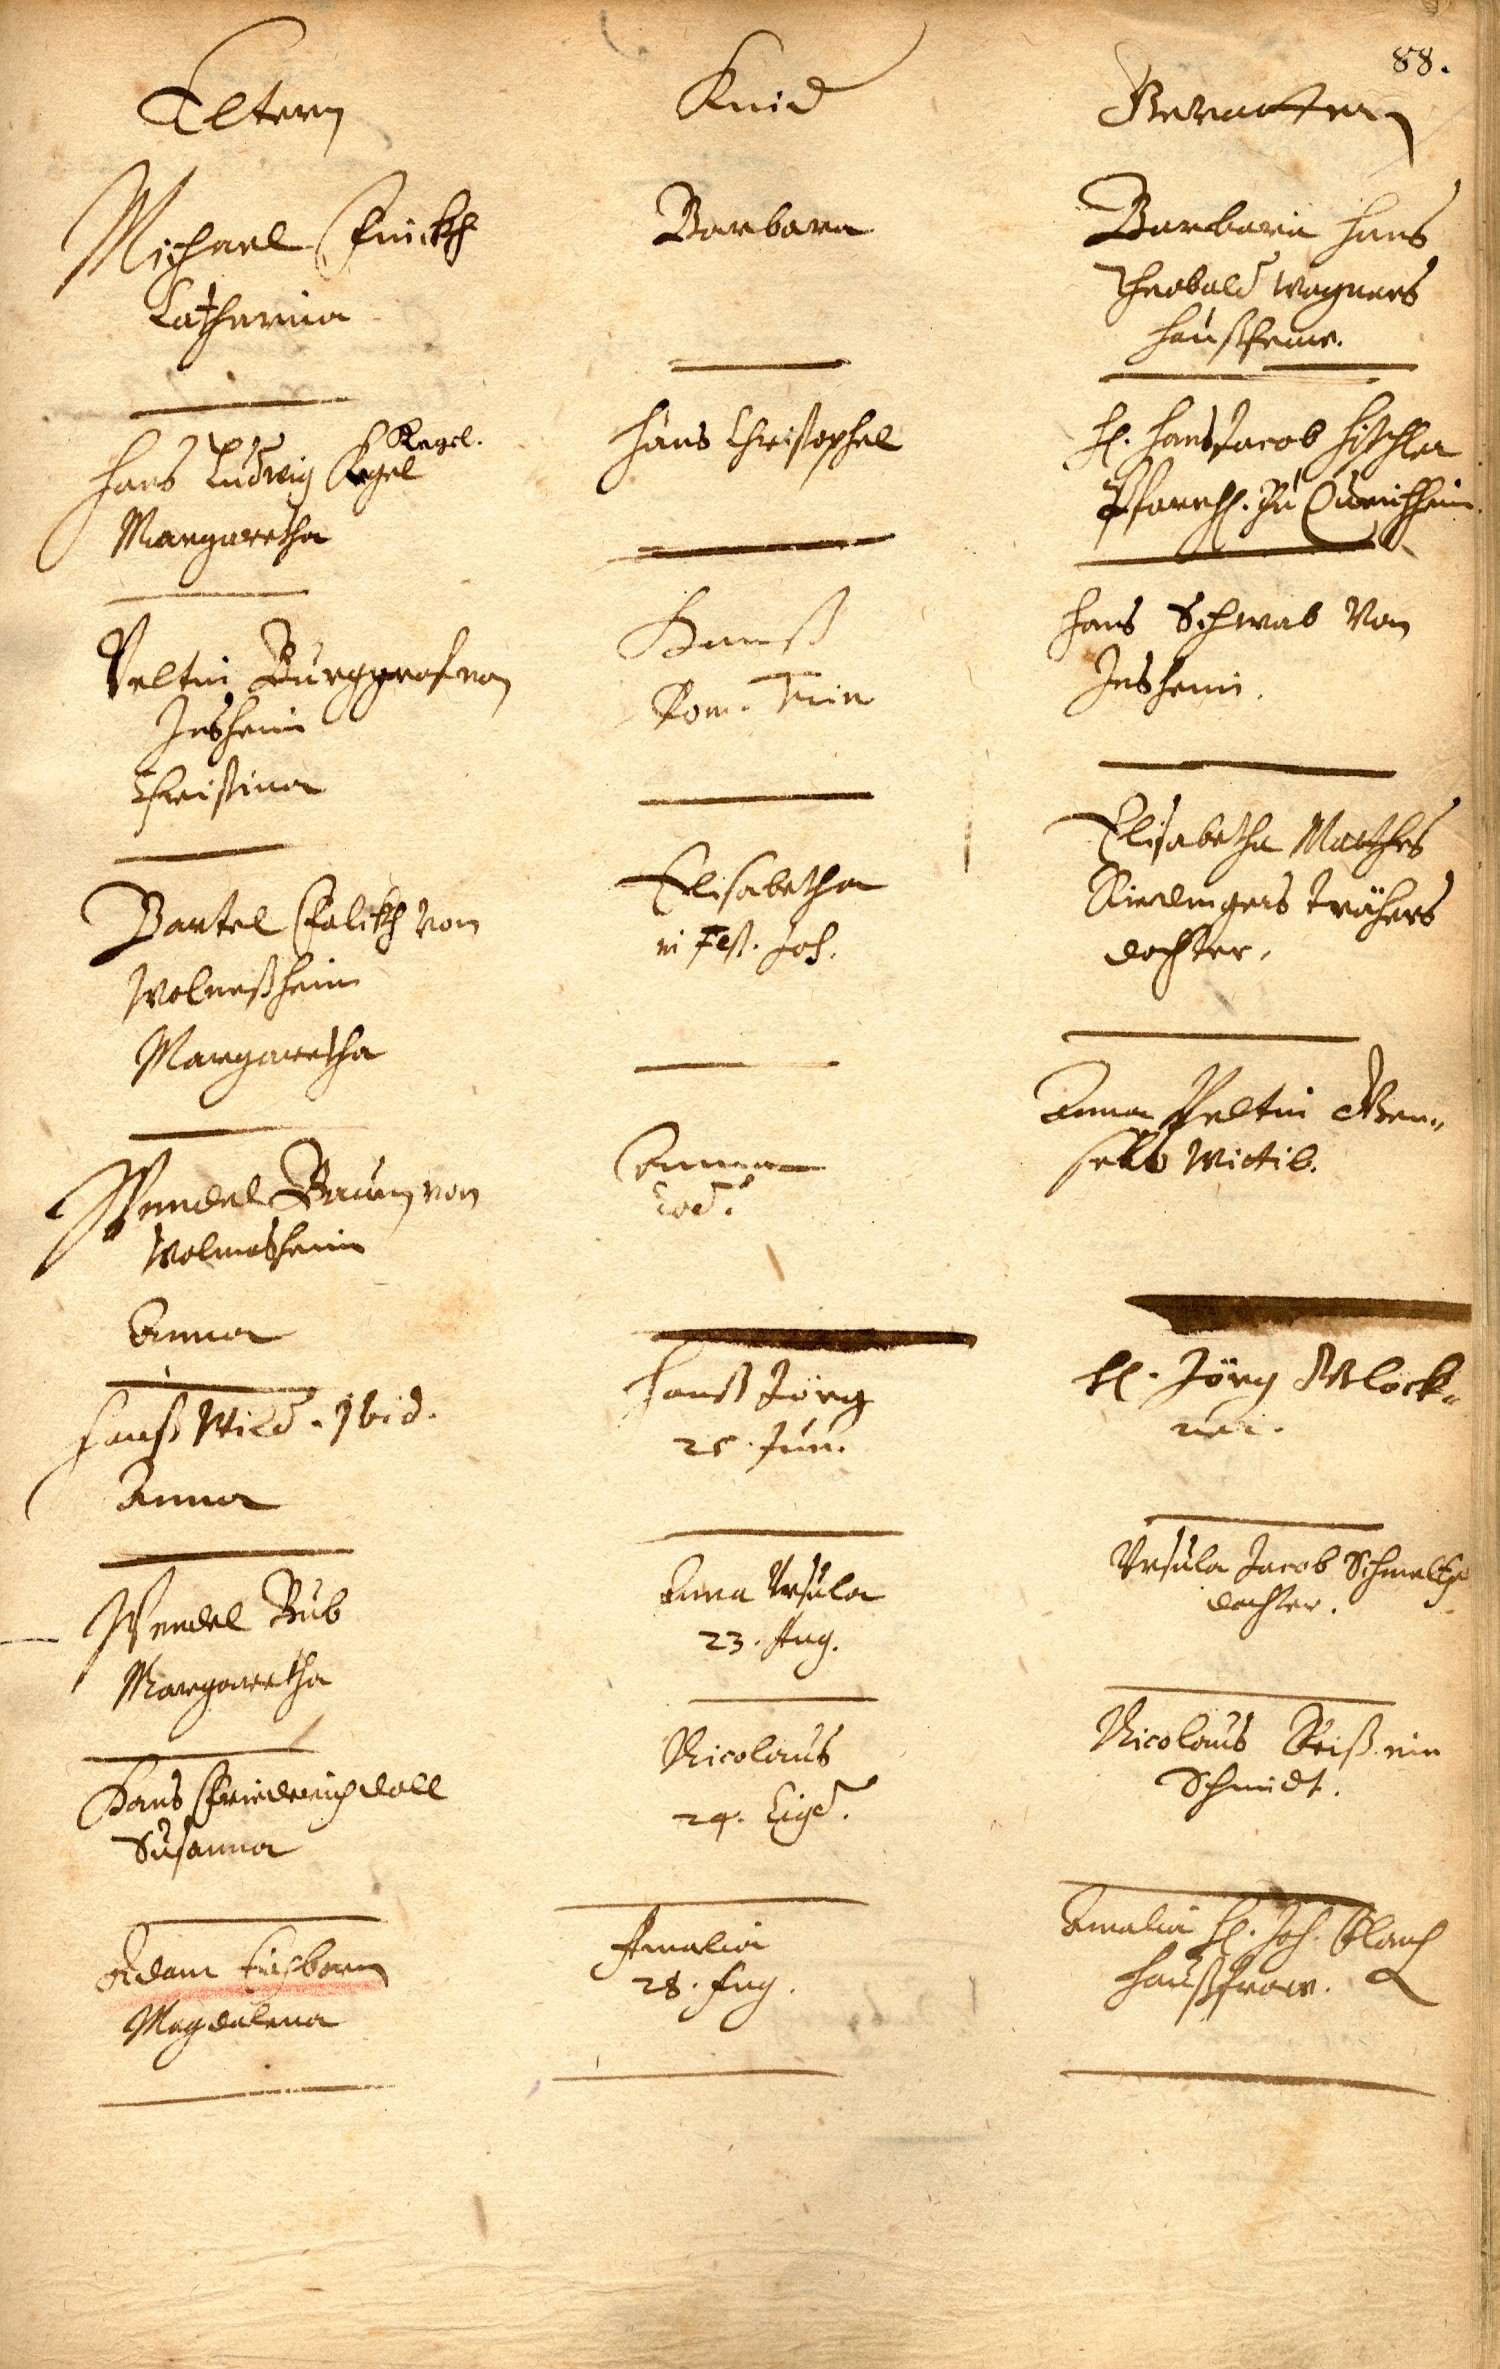 88.
Eltern
Kind
Gevattern
Michael Finckh
Catharina
Barbara
Barbara Hans
Theobald Wagners
haußfraw.
Hans Ludwig Kegel
Kegel.
Margaretha
Hans Christophel
H. Hans Jacob Fischler
Pfarrh. zu
Veltin Burggraf von
Insheim
Christina
Hanß
Dom. Trin
Hans Schwab von
Insheim.
Bartel Falckh von
Wolmeßheim
Margaretha
Elisabetha
in Fest. Joh.
Elisabetha Matthes
dochter.
Wendel Baum von
Wolmesheim
Anna
Anna
Eod.
Anna Veltin Gen„
sels Wittib.
Hanß Wild. Ibid.
Anna
Hanß Jörg
25. Jun.
H. Jörg Glock„
ner.
Wendel Bub
Margaretha
Anna Ursula
23. Aug.
Ursula Jacob Schmeltz
dochter.
Hans Friederich Doll
Susanna
Nicolaus
24. Eiusd.
Nicolaus Reiß ein
Schmidt.
Adam
Magdalena
Amalia
28. Aug.
Amalia H. Joh.
Haußfraw.